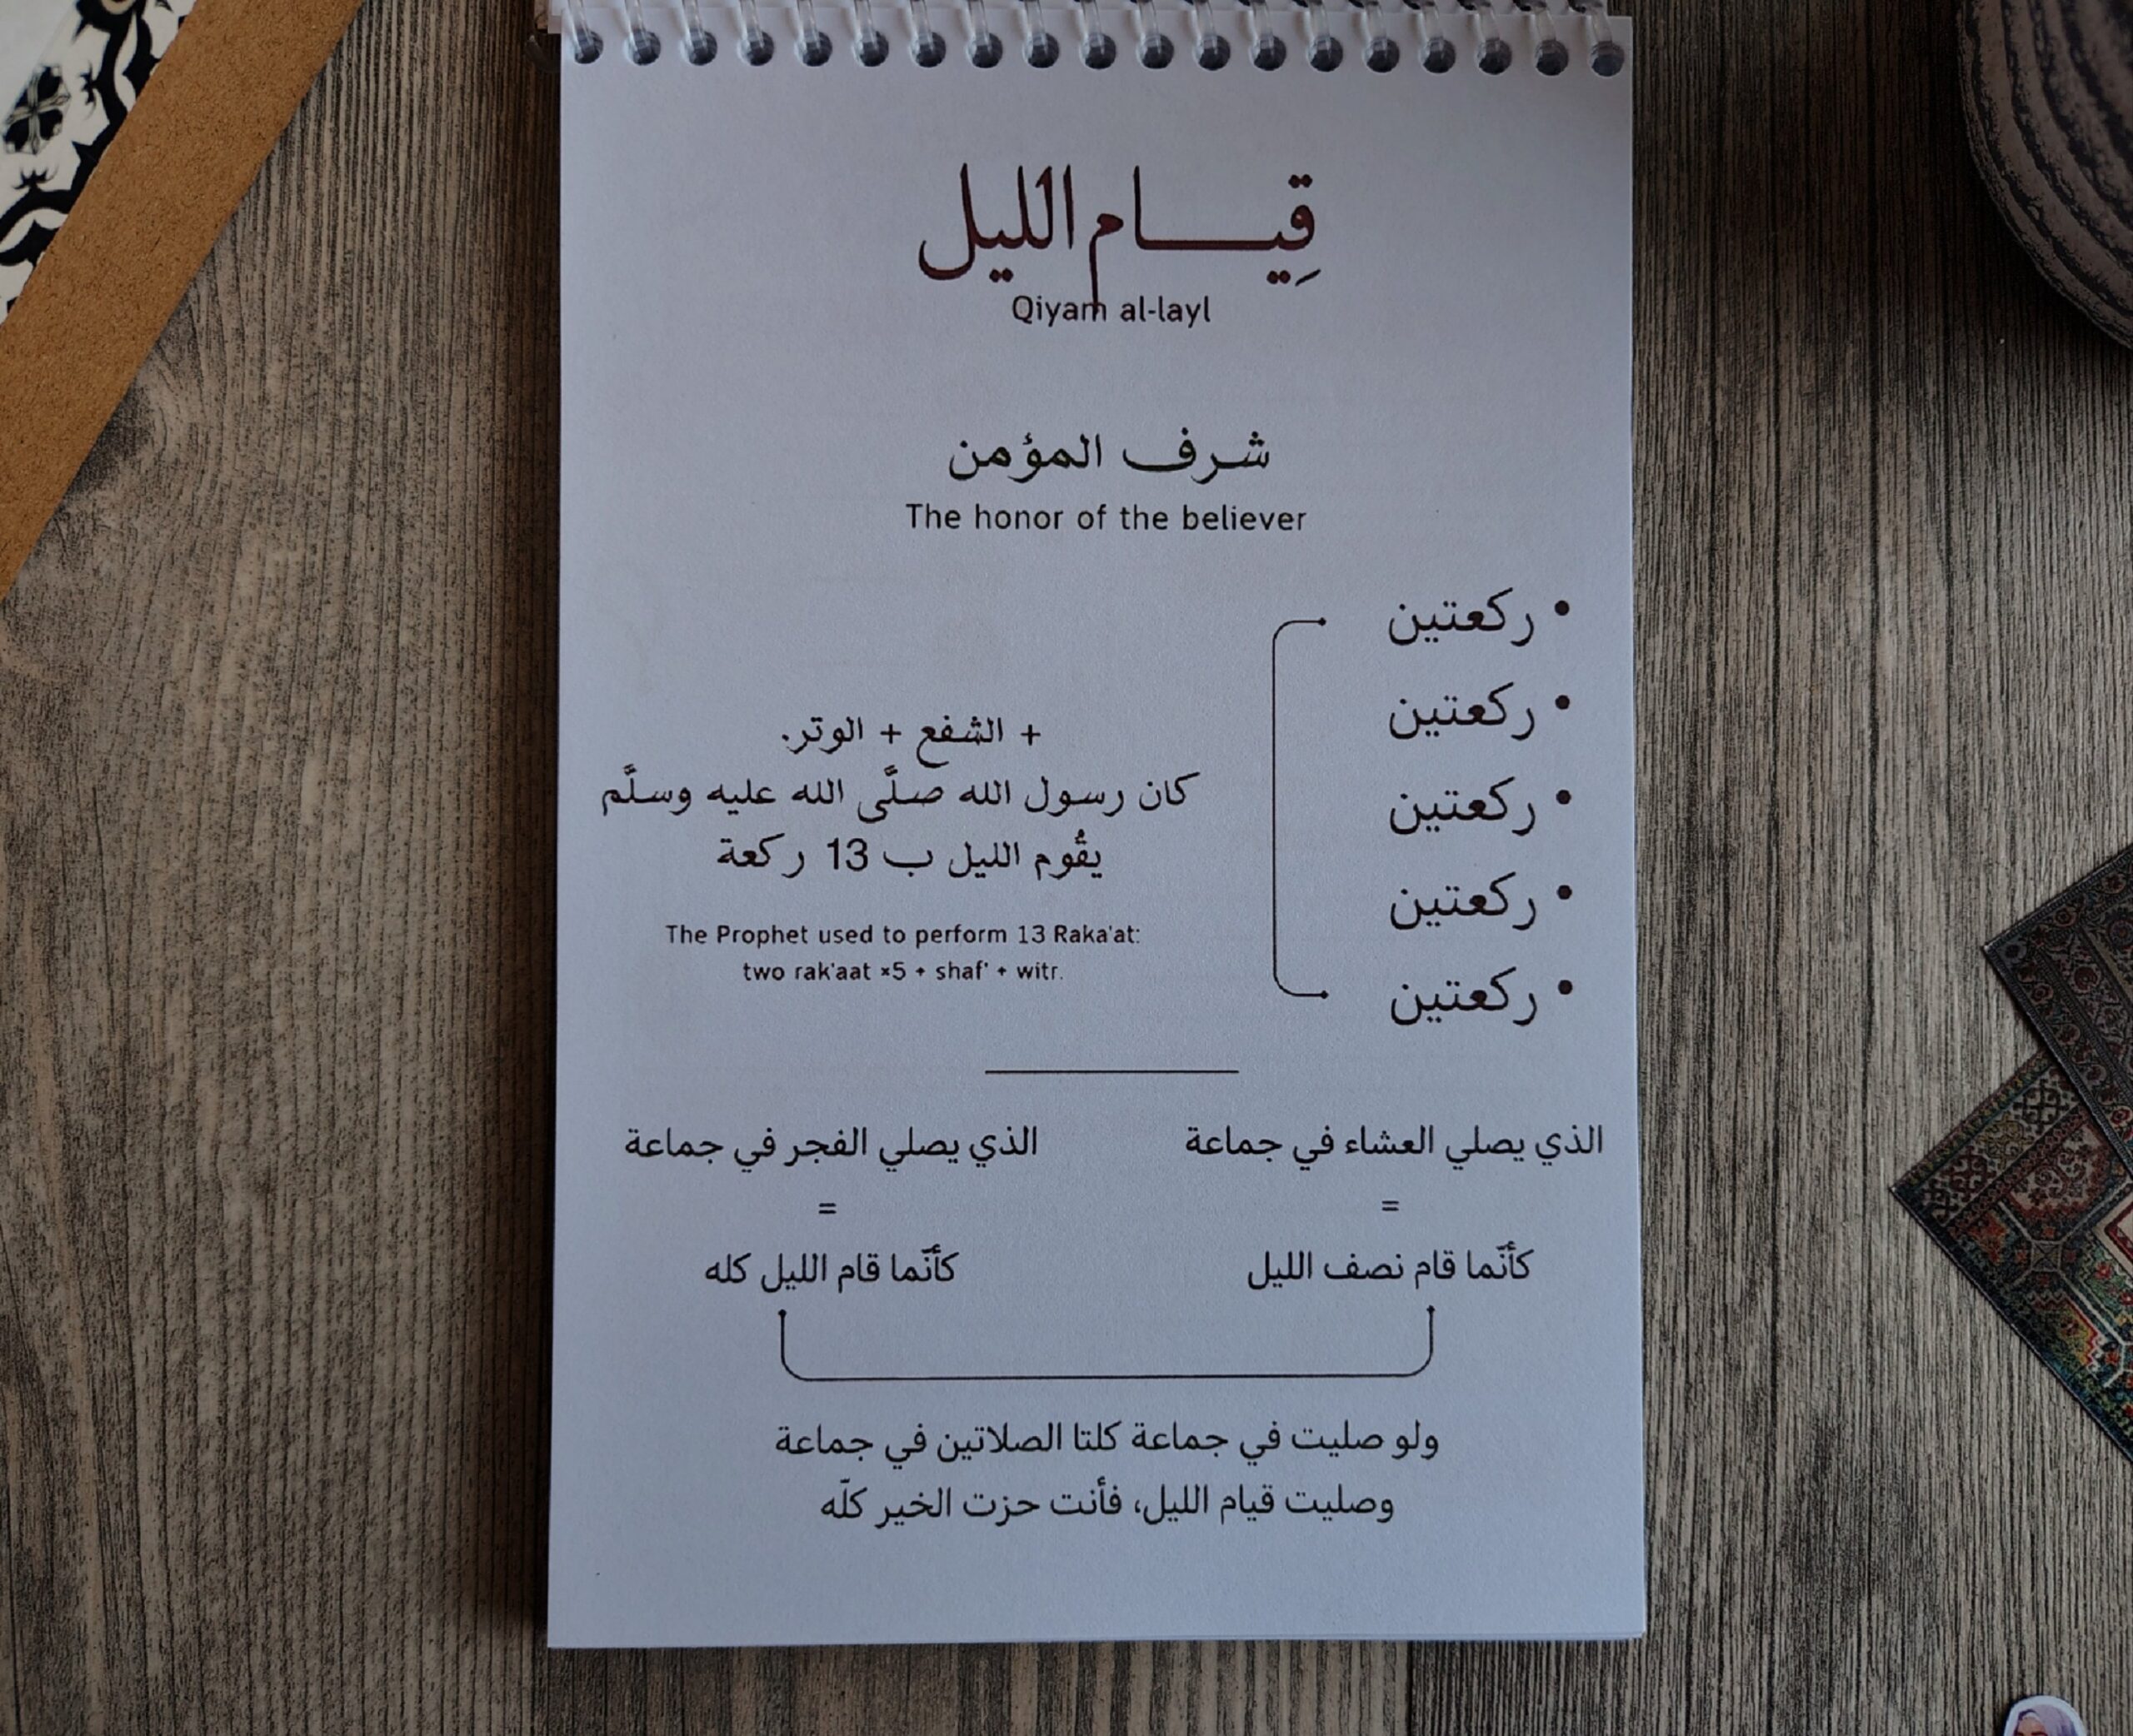 قِيـــــام الليل
Qiyam al-layl
شرف المؤمن
The honor of the believer
• ركعتين
• ركعتين
• ركعتين
• ركعتين
• ركعتين
+ الشفع + الوتر.
كان رسول الله صلَّى الله عليه وسلَّم
يقُوم الليل ب 13 ركعة
The Prophet used to perform 13 Raka'at:
two rak'aat ×5 + shaf' + witr.
الذي يصلي العشاء في جماعة
=
كأنّما قام نصف الليل
الذي يصلي الفجر في جماعة
=
كأنّما قام الليل كله
ولو صليت في جماعة كلتا الصلاتين في جماعة
وصليت قيام الليل، فأنت حزت الخير كلّه